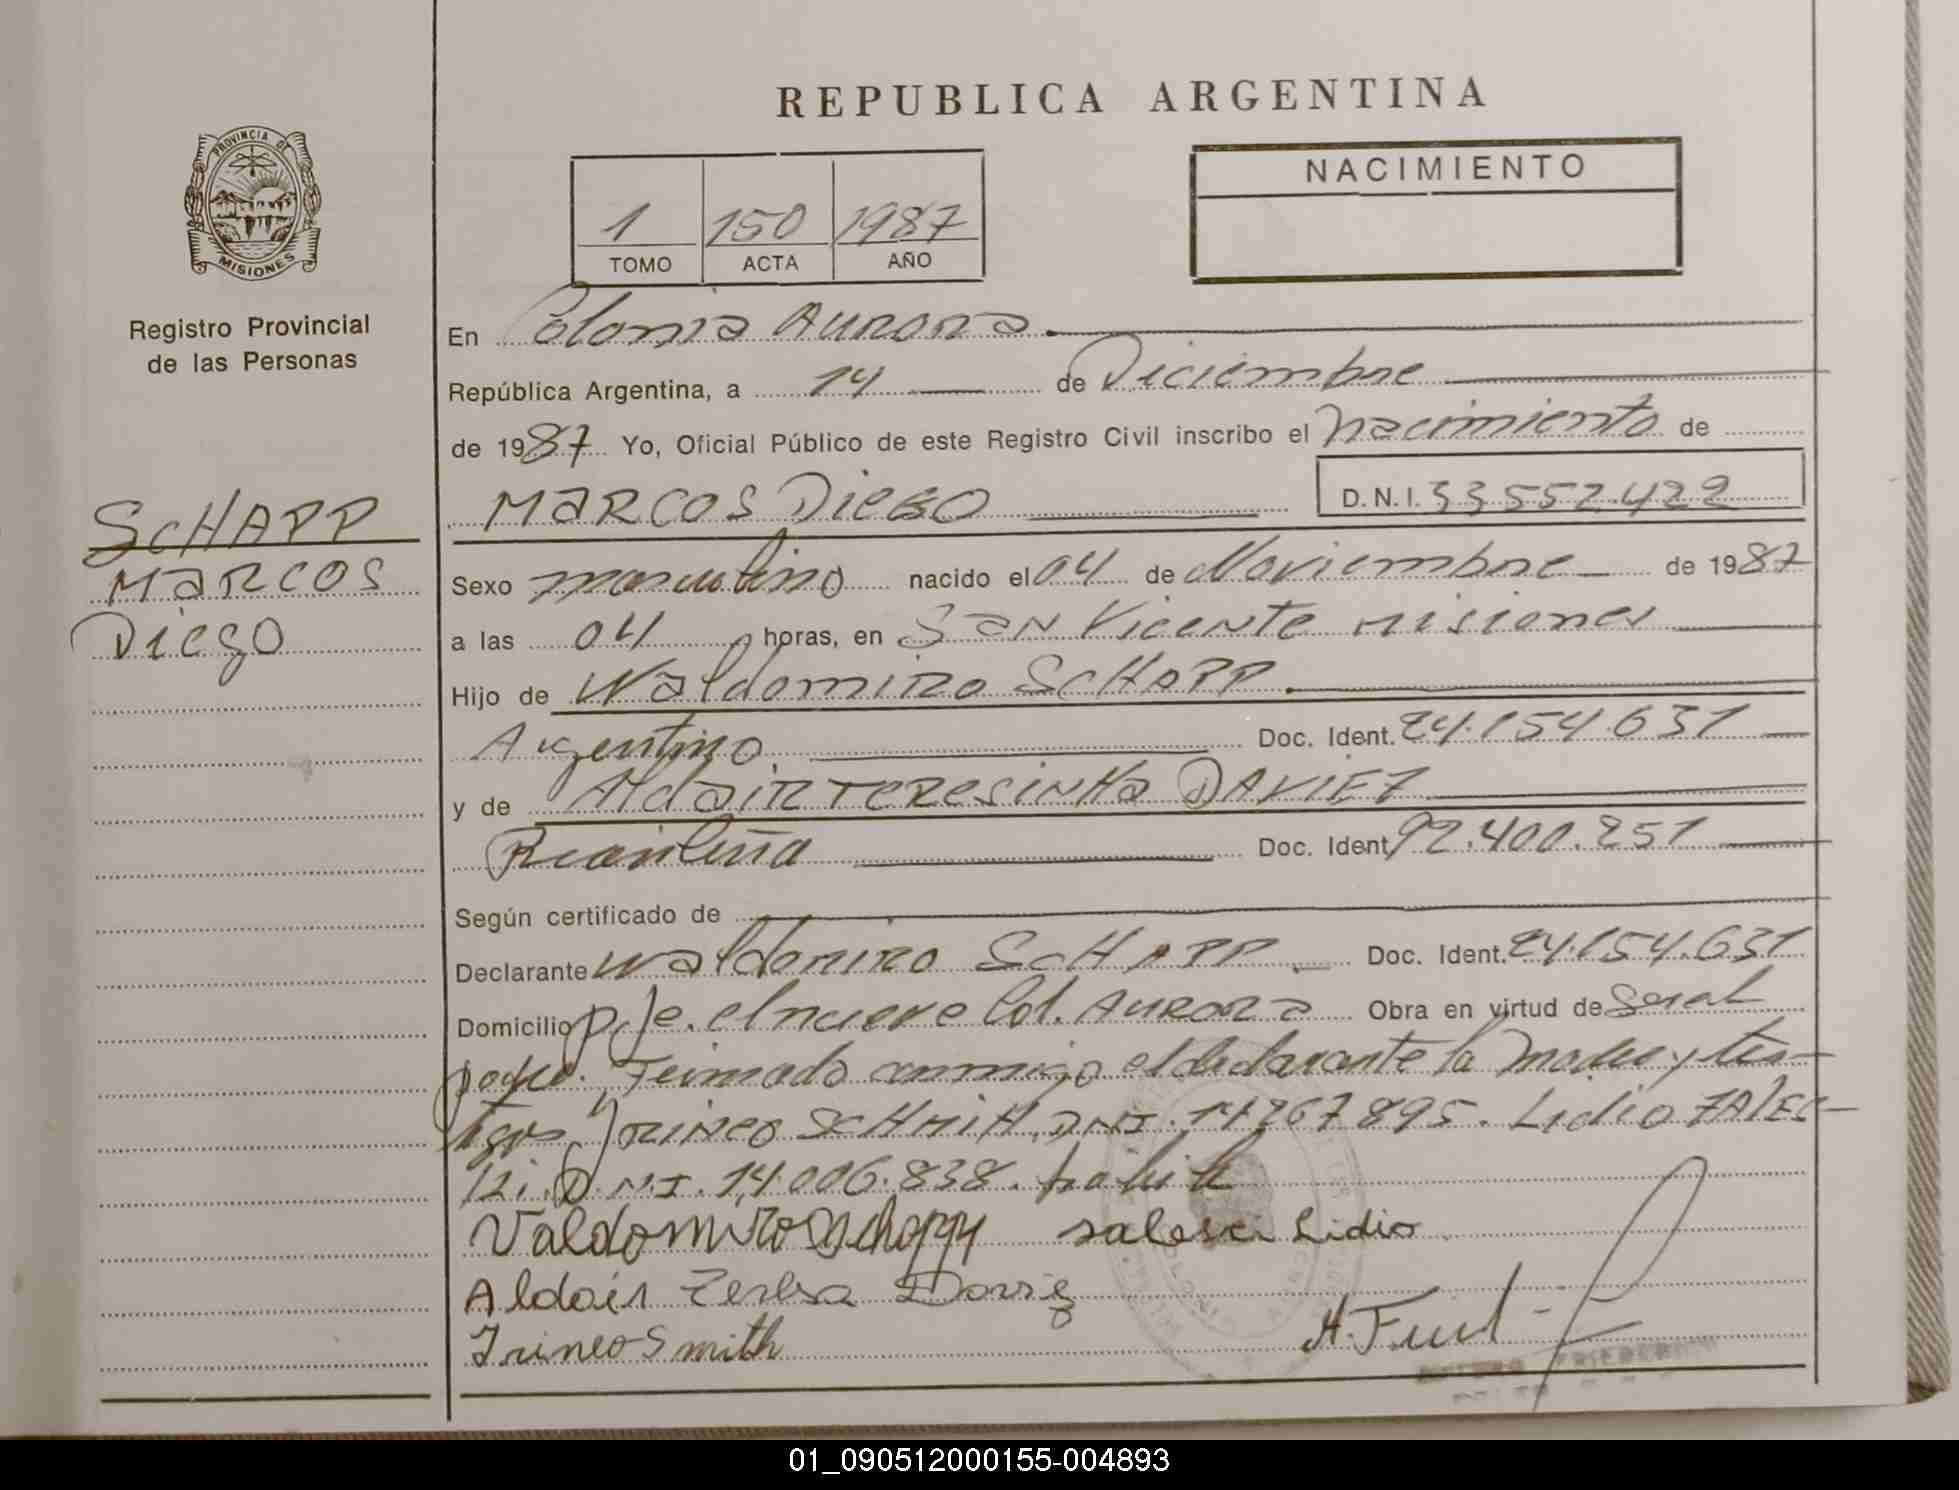 REPUBLICA ARGENTINA
PROVINCIA DE
MISIONES
Registro Provincial
de las Personas
1 150 1987
TOMO ACTA AÑO
NACIMIENTO
En Colonia Aurora
República Argentina, a 14 de Diciembre
de 1987 Yo, Oficial Público de este Registro Civil inscribo el Nacimiento de
MARCOS DIEGO D.N.I. 33.552.422
SCHAPP
MARCOS
DIEGO
Sexo masculino nacido el 04 de Noviembre de 1987
a las 04 horas, en SAN Vicente Misiones
Hijo de Waldomiro SCHAPP
Argentino Doc. Ident. 24.154.631
y de Aldair Teresinha DAVIEZ
Brasileña Doc. Ident. 92.400.251
Según certificado de
Declarante Waldomiro SCHAPP Doc. Ident. 24.154.631
Domicilio pje. el nueve Col. Aurora Obra en virtud de
Firmado conmigo el declarante la madre y tes-
tigos Irineo SCHMIH. DNI. 14267895. Lidio ZALEC-
ki. D.N.I. 14.006.838.
Valdomiro Schapp salesci Lidio
Aldair Daviez
Irineo Smith
01_090512000155-004893